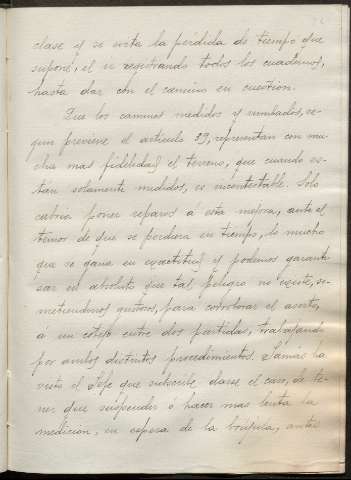 clase y se evita la pérdida de tiempo que
supone, el ir registrando todos los cuadernos,
hasta dar con el camino en cuestion.
Que los caminos medidos y rumbados, se-
gun previene el artículo 39, representan con mu-
cha mas fidelidad el terreno, que cuando es-
tán solamente medidos, es incontestable. Solo
cabria poner reparos á esta mejora, ante el
temor de que se perdiera en tiempo, lo mucho
que se gana en exactitud y podemos garanti-
zar en absoluto que tal peligro no existe, so-
metiendonos gustosos, para corroborar el aserto,
á un cotejo entre dos partidas, trabajando
por ambos distintos procedimientos. Jamás ha
visto el Jefe que subscribe darse el caso, de te-
ner que suspender ó hacer mas lenta la
medicion, en espera de la brújula, antes